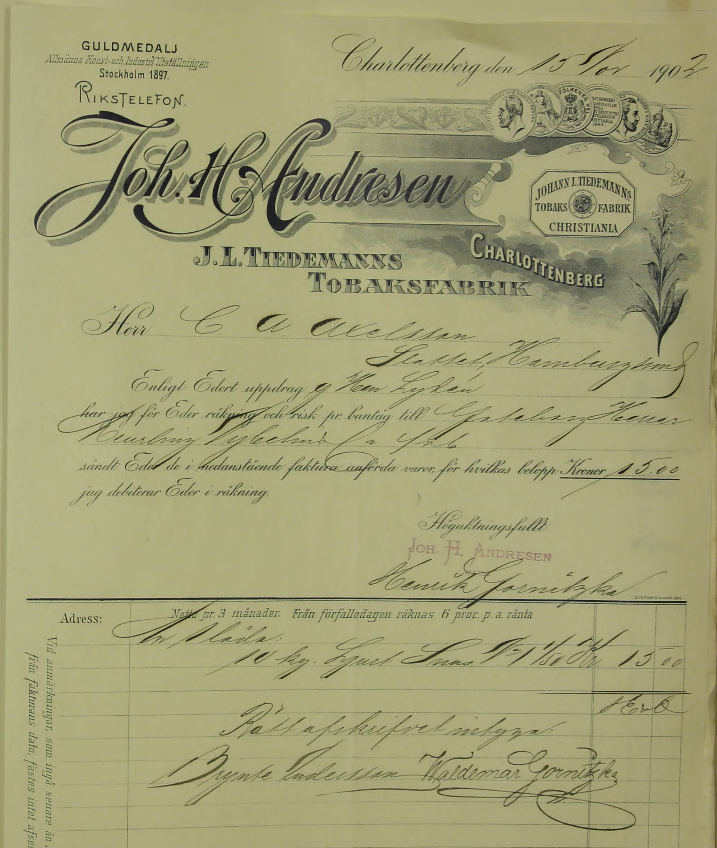 GULDMEDALJ
Allmänna Konst- och Industri Utställningen
Stockholm 1897.
RIKSTELEFON.
Charlottenberg den 15 Nov 1902
Joh. H. Andresen
JOHANN L. TIEDEMANNS
TOBAKS FABRIK
CHRISTIANIA
CHARLOTTENBERG
J. L. TIEDEMANNS
TOBAKSFABRIK
Herr C A Axelsson
Slottet, Hamburgsund
Enligt Edert uppdrag g Herr Lydén
har jag för Eder räkning och risk pr. bantåg till Göteborg Herrar
Meurling
sändt Eder de i nedanstående faktura anförda varor, för hvilkas belopp Kronor 15.00
jag debiterar Eder i räkning.
Högaktningsfullt
JOH. H. ANDRESEN
Henrik Gornitzka
Adress:
Netto pr. 3 månader. Från förfallodagen räknas 6 proc. p. a. ränta
1 låda:
10 kg. Ljust Snus 1/50 Kr 15 00
E & O
Rätt afskrifvet intyga:
Brynte Andersson Waldemar Gornitzka
Vid anmärkningar, som ingå senare än
från fakturans datu, fästes intet afse